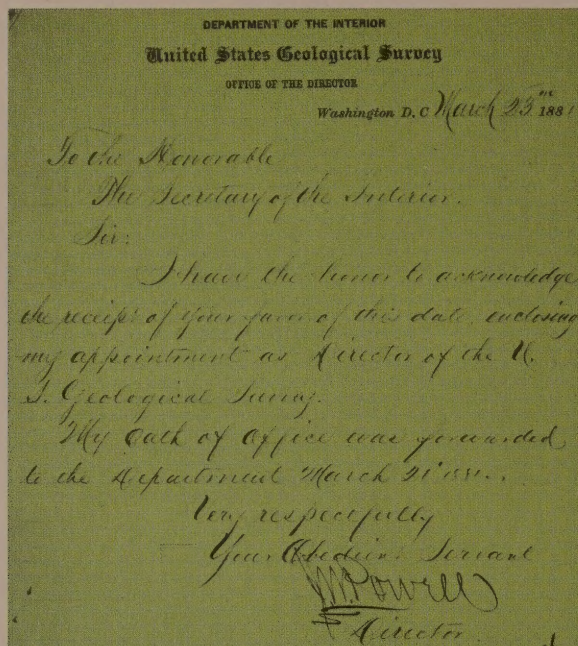 DEPARTMENT OF THE INTERIOR
United States Geological Survey
OFFICE OF THE DIRECTOR
Washington D. C March 23 1881
To the Honorable
The Secretary of the Interior.
Sir:
I have the honor to acknowledge
the receipt of your favor of this date, enclosing
my appointment as Director of the U.
S. Geological Survey.
My Oath of Office was forwarded
to the Department March 21
Very respectfully
Your Obedient Servant
J.W. Powell
Director.